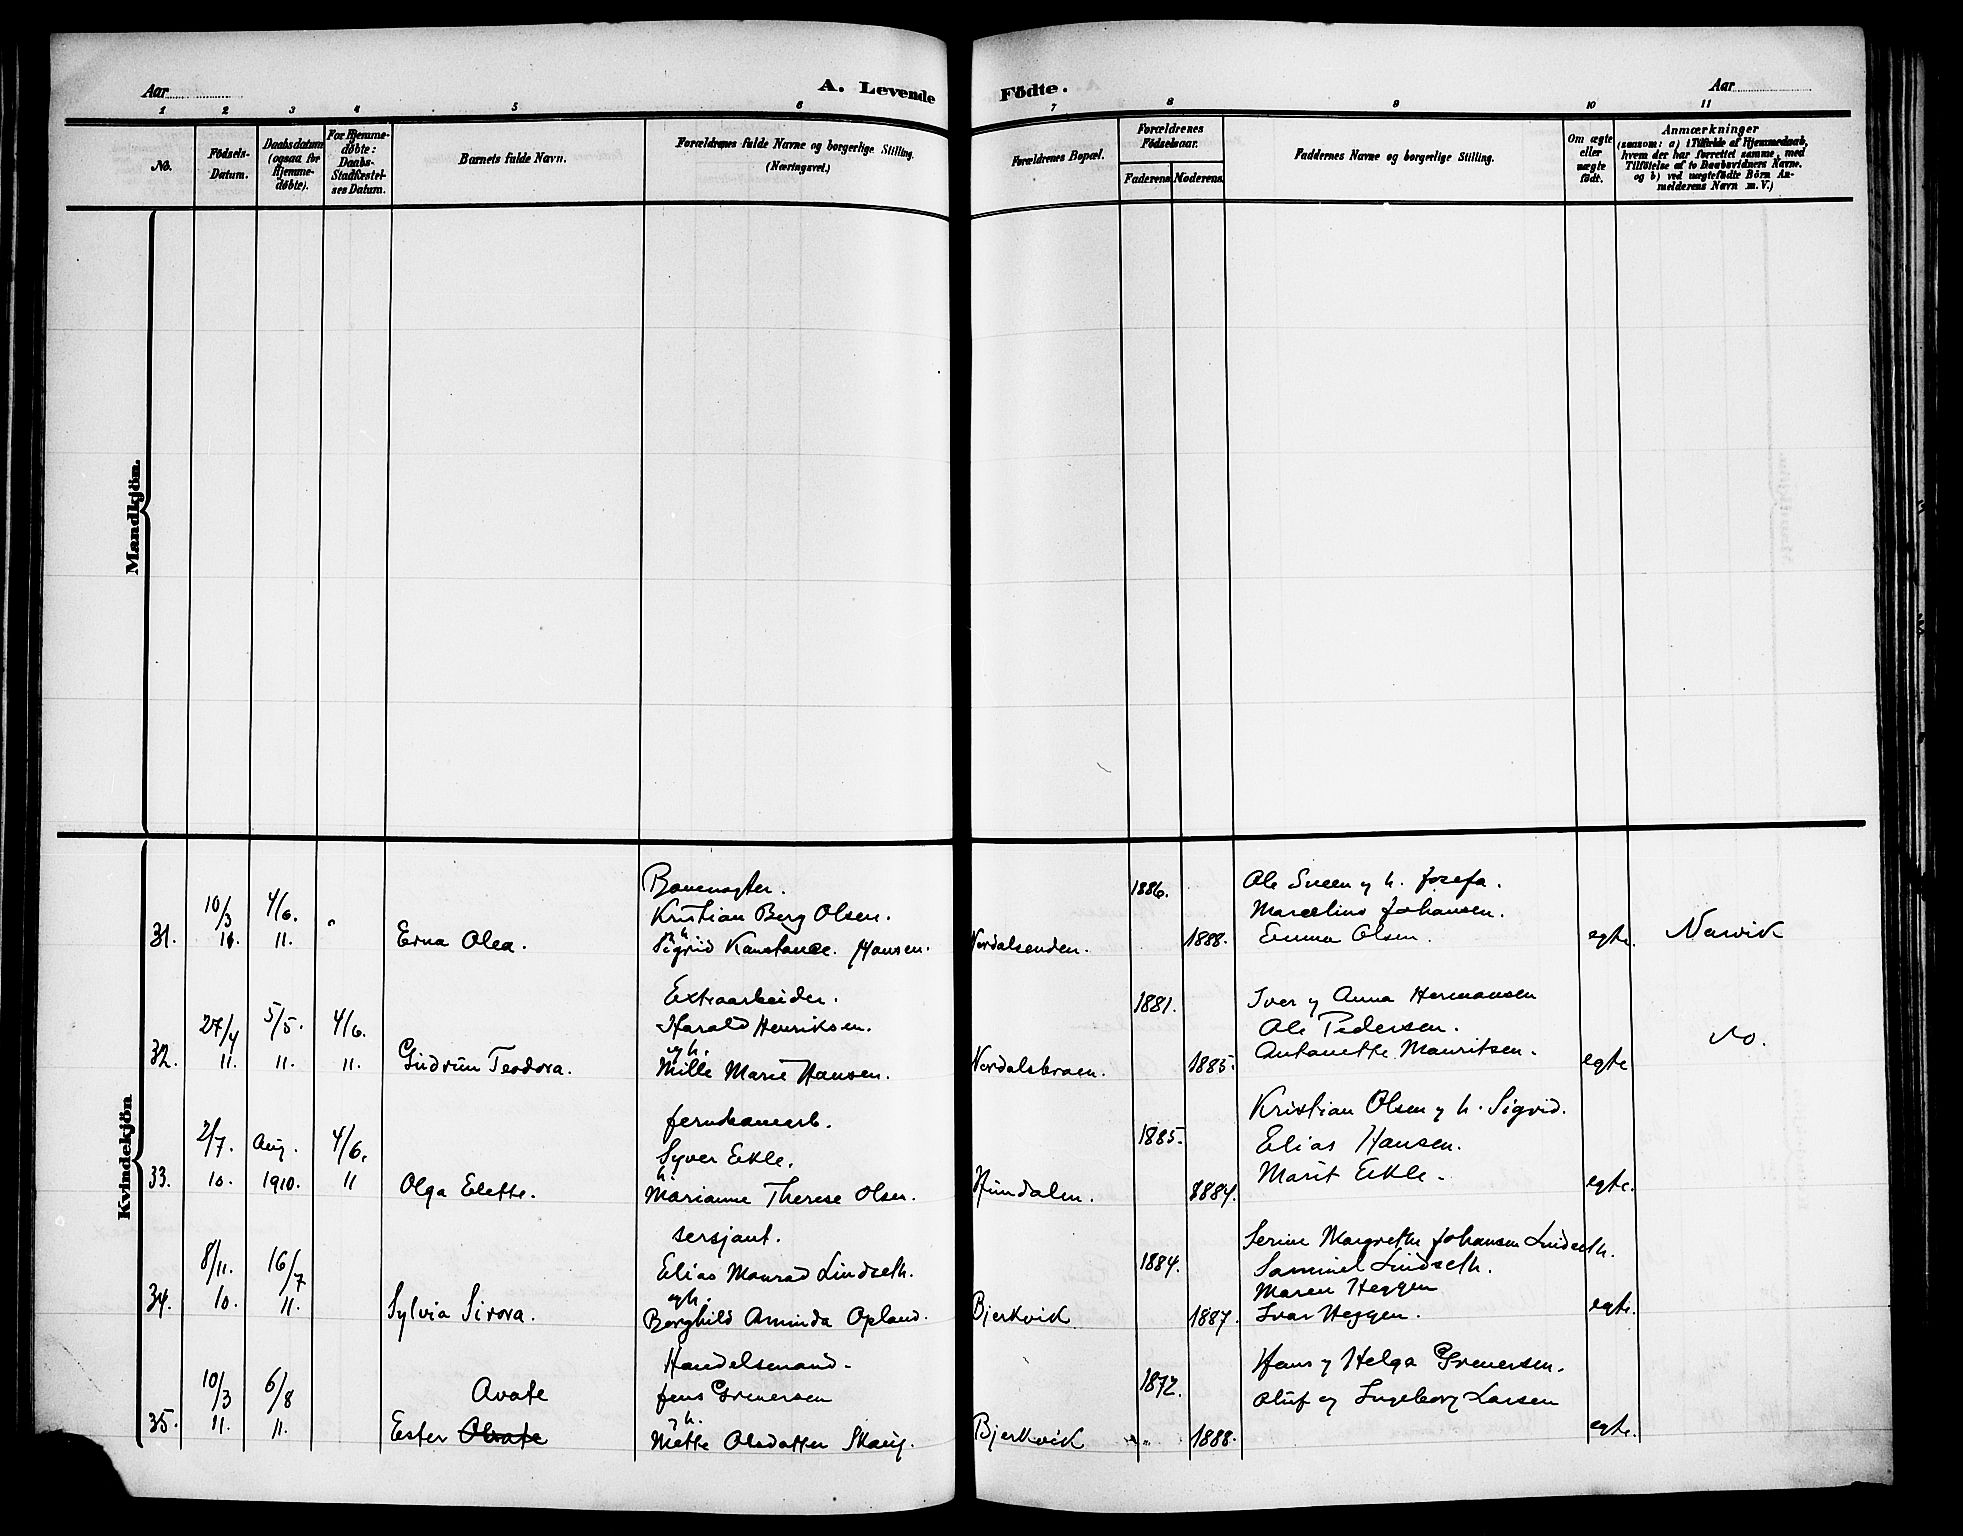 Aar
A. Levende Födte.
Aar
1 2 3 4 5 6 7 8 9 10 11
No.
Födsels-
Datum.
Daabsdatum
(ogsaa for
Hjemme-
døbte).
For Hjemme-
døbte:
Daabs-
Stadfæstel-
ses Datum.
Barnets fulde Navn.
Forældrenes fulde Navne og borgerlige Stilling.
(Næringsvei.)
Forældrenes Bopæl.
Forældrenes
Födselsaar.
Faderens. Moderens.
Faddernes Navne og borgerlige Stilling.
Om ægte
eller
uægte
födt.
Anmærkninger
(saasom: a) i Tilfælde af Hjemmedaab,
hvem der har forrettet samme, med
Tilföielse af to Daabsvidners Navne.
og b) ved uægtefödte Börn An-
melderens Navn m. V.)
Mandkjön.
Kvindekjön
31.
10/3
11.
4/6.
11.
"
Erna Olea.
Banevogter.
Kristian Berg Olsen.
h
Sigrid Konstance Hansen.
Nordalsenden.
1886.
1888.
Ole Sneen y h. Josefa.
Marcelius Johansen.
Emma Olsen.
egte.
Narvik
32.
27/4
11.
5/5.
11.
4/6.
11.
Gudrun Teodora.
Extraarbeider.
Harald Henriksen.
og h.
Mille Marie Hansen.
Nordalsbroen.
1881.
1885.
Iver y Anna Hermansen
Ole Pedersen.
Antonette Mauritsen.
egte
do.
33.
2/7.
10.
Aug.
1910.
4/6.
11
Olga Elette.
jernbanearb.
Syver Ekle.
h.
Marianne Therese Olsen.
Hundalen.
1885.
1884.
Kristian Olsen y h. Sigrid.
Elias Hansen.
Marit Ekle.
egte.
34.
8/11.
10.
16/7
11.
Sylvia Sirora.
Sersjant.
Elias Monrad Lindseth.
og h.
Borghild Aminda Opland.
Bjerkvik
1884.
1887.
Serine Margrethe Johansen Lindseth.
Samuel Lindseth.
Maren Heggen
Ivar Heggen.
egte.
35.
10/3
11.
6/8
11.
Avate
Ester Olvate
Handelsmand.
Jens Grenersen
y h.
Mette Olsdatter Skaug.
Bjerkvik
1872.
1888.
Hans y Helga Grenersen.
Oluf og Ingeborg Larsen
egte.